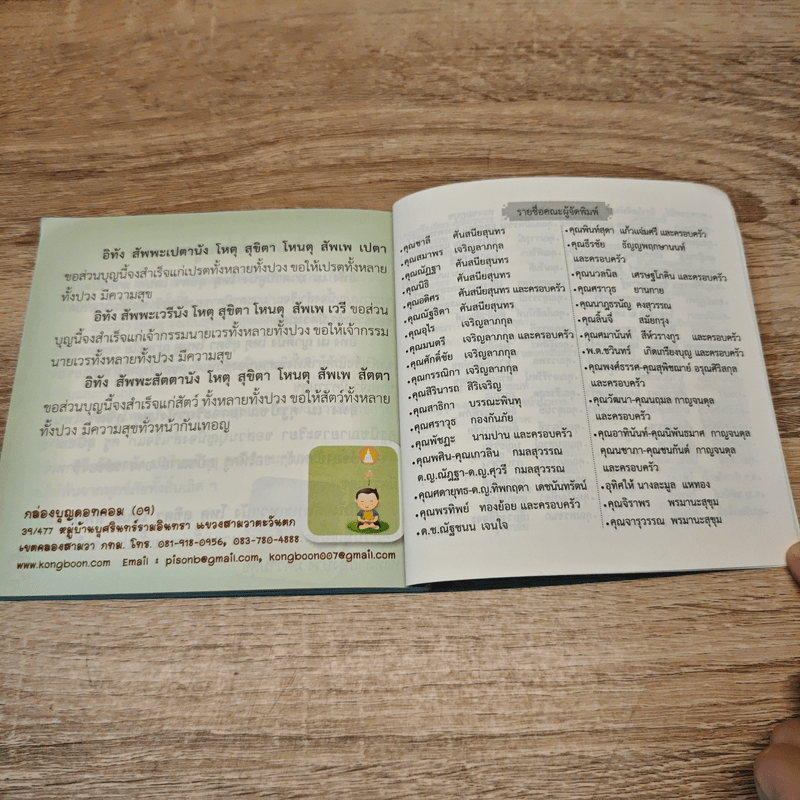 อิทัง สัพพะเปตานัง โหตุ สุขิตา โหนตุ สัพเพ เปตา
ขอส่วนบุญนี้จงสำเร็จแก่เปรตทั้งหลายทั้งปวง ขอให้เปรตทั้งหลาย
ทั้งปวง มีความสุข
อิทัง สัพพะเวรีนัง โหตุ สุขิตา โหนตุ สัพเพ เวรี ขอส่วน
บุญนี้จงสำเร็จแก่เจ้ากรรมนายเวรทั้งหลายทั้งปวง ขอให้เจ้ากรรม
นายเวรทั้งหลายทั้งปวง มีความสุข
อิทัง สัพพะสัตตานัง โหตุ สุขิตา โหนตุ สัพเพ สัตตา
ขอส่วนบุญนี้จงสำเร็จแก่สัตว์ ทั้งหลายทั้งปวง ขอให้สัตว์ทั้งหลาย
ทั้งปวง มีความสุขทั่วหน้ากันเทอญ
กล่องบุญดอทคอม (09)
39/477 หมู่บ้านบุศรินทร์รามอินทรา แขวงสามวาตะวันตก
เขตคลองสามวา กทม. โทร. 081-918-0956, 083-780-4888
www.kongboon.com Email : pisonb@gmail.com, kongboon007@gmail.com
รายชื่อคณะผู้จัดพิมพ์
•คุณชาลี คันสนียสุนทร
•คุณสมาพร เจริญลาภกุล
•คุณณัฏฐา คันสนียสุนทร
•คุณนิธิ คันสนียสุนทร
•คุณอดิศร คันสนียสุนทร และครอบครัว
•คุณณัฐธิดา คันสนียสุนทร
•คุณอุไร เจริญลาภกุล
•คุณมนตรี เจริญลาภกุล และครอบครัว
•คุณศักดิ์ชัย เจริญลาภกุล
•คุณกรรณิกา เจริญลาภกุล
•คุณสิรินารถ สิริเจริญ
•คุณสาธิกา บรรณะพันทุ
•คุณศราวุธ กองกันภัย
•คุณพัชฎะ นามปาน และครอบครัว
•คุณพศิน-คุณเกวลิน กมลสุวรรณ
ด.ญ.ณัฏฐา-ด.ญ.ศุวรี กมลสุวรรณ
•คุณศตายุทธ-ด.ญ.ทิพกฤตา เดชนันทรัตน์
•คุณพรทิพย์ ทองย้อย และครอบครัว
•ด.ช.ณัฐชนน เจนใจ
•คุณพินท์สุดา แก้วแจ่มศรี และครอบครัว
•คุณธีรชัย ธัญญพฤกษานนท์
และครอบครัว
•คุณนวลนิล เศรษฐโภคิน และครอบครัว
•คุณศราวุธ ยานกาย
•คุณนาฏธนัญ คงสุวรรณ
•คุณลิ้นจี่ สมัยกรุง
•คุณศมานันท์ สีห์วรางกูร และครอบครัว
•พ.ต.ชวินทร์ เกิดเกรียงบุญ และครอบครัว
•คุณพงศ์ธรรศ-คุณสุพิชฌาย์ อรุณศิริสกุล
และครอบครัว
•คุณวัฒนา-คุณนฤมล กาญจนดุล
และครอบครัว
•คุณอาทินันท์-คุณนิพันธมาศ กาญจนดุล
คุณนชาภา-คุณชนกันต์ กาญจนดุล
และครอบครัว
•อุทิศให้ นางละมูล แตทอง
•คุณจิราพร พรมานะสุขุม
•คุณจารุวรรณ พรมานะสุขุม